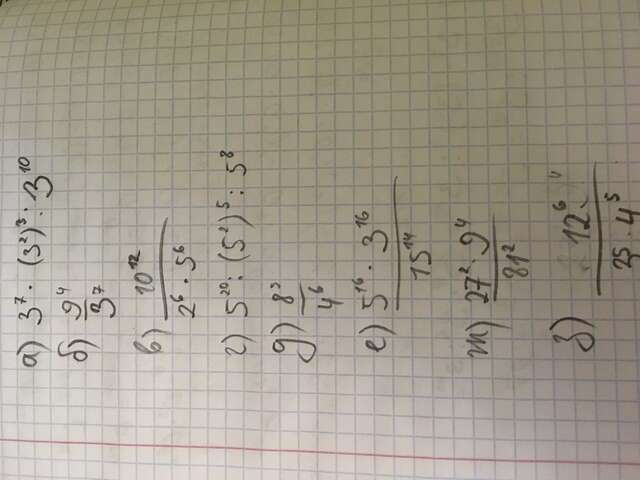 а) 3⁷ · (3²)³ : 3¹⁰
б) 9⁴/3⁷
в) 10¹²/2⁶ · 5⁶
г) 5²⁰ : (5²)⁵ : 5⁸
д) 8³/4⁶
е) 5¹⁶ · 3¹⁶/15¹⁴
ж) 27² · 9⁴/81²
з) 12⁶/· 4⁵